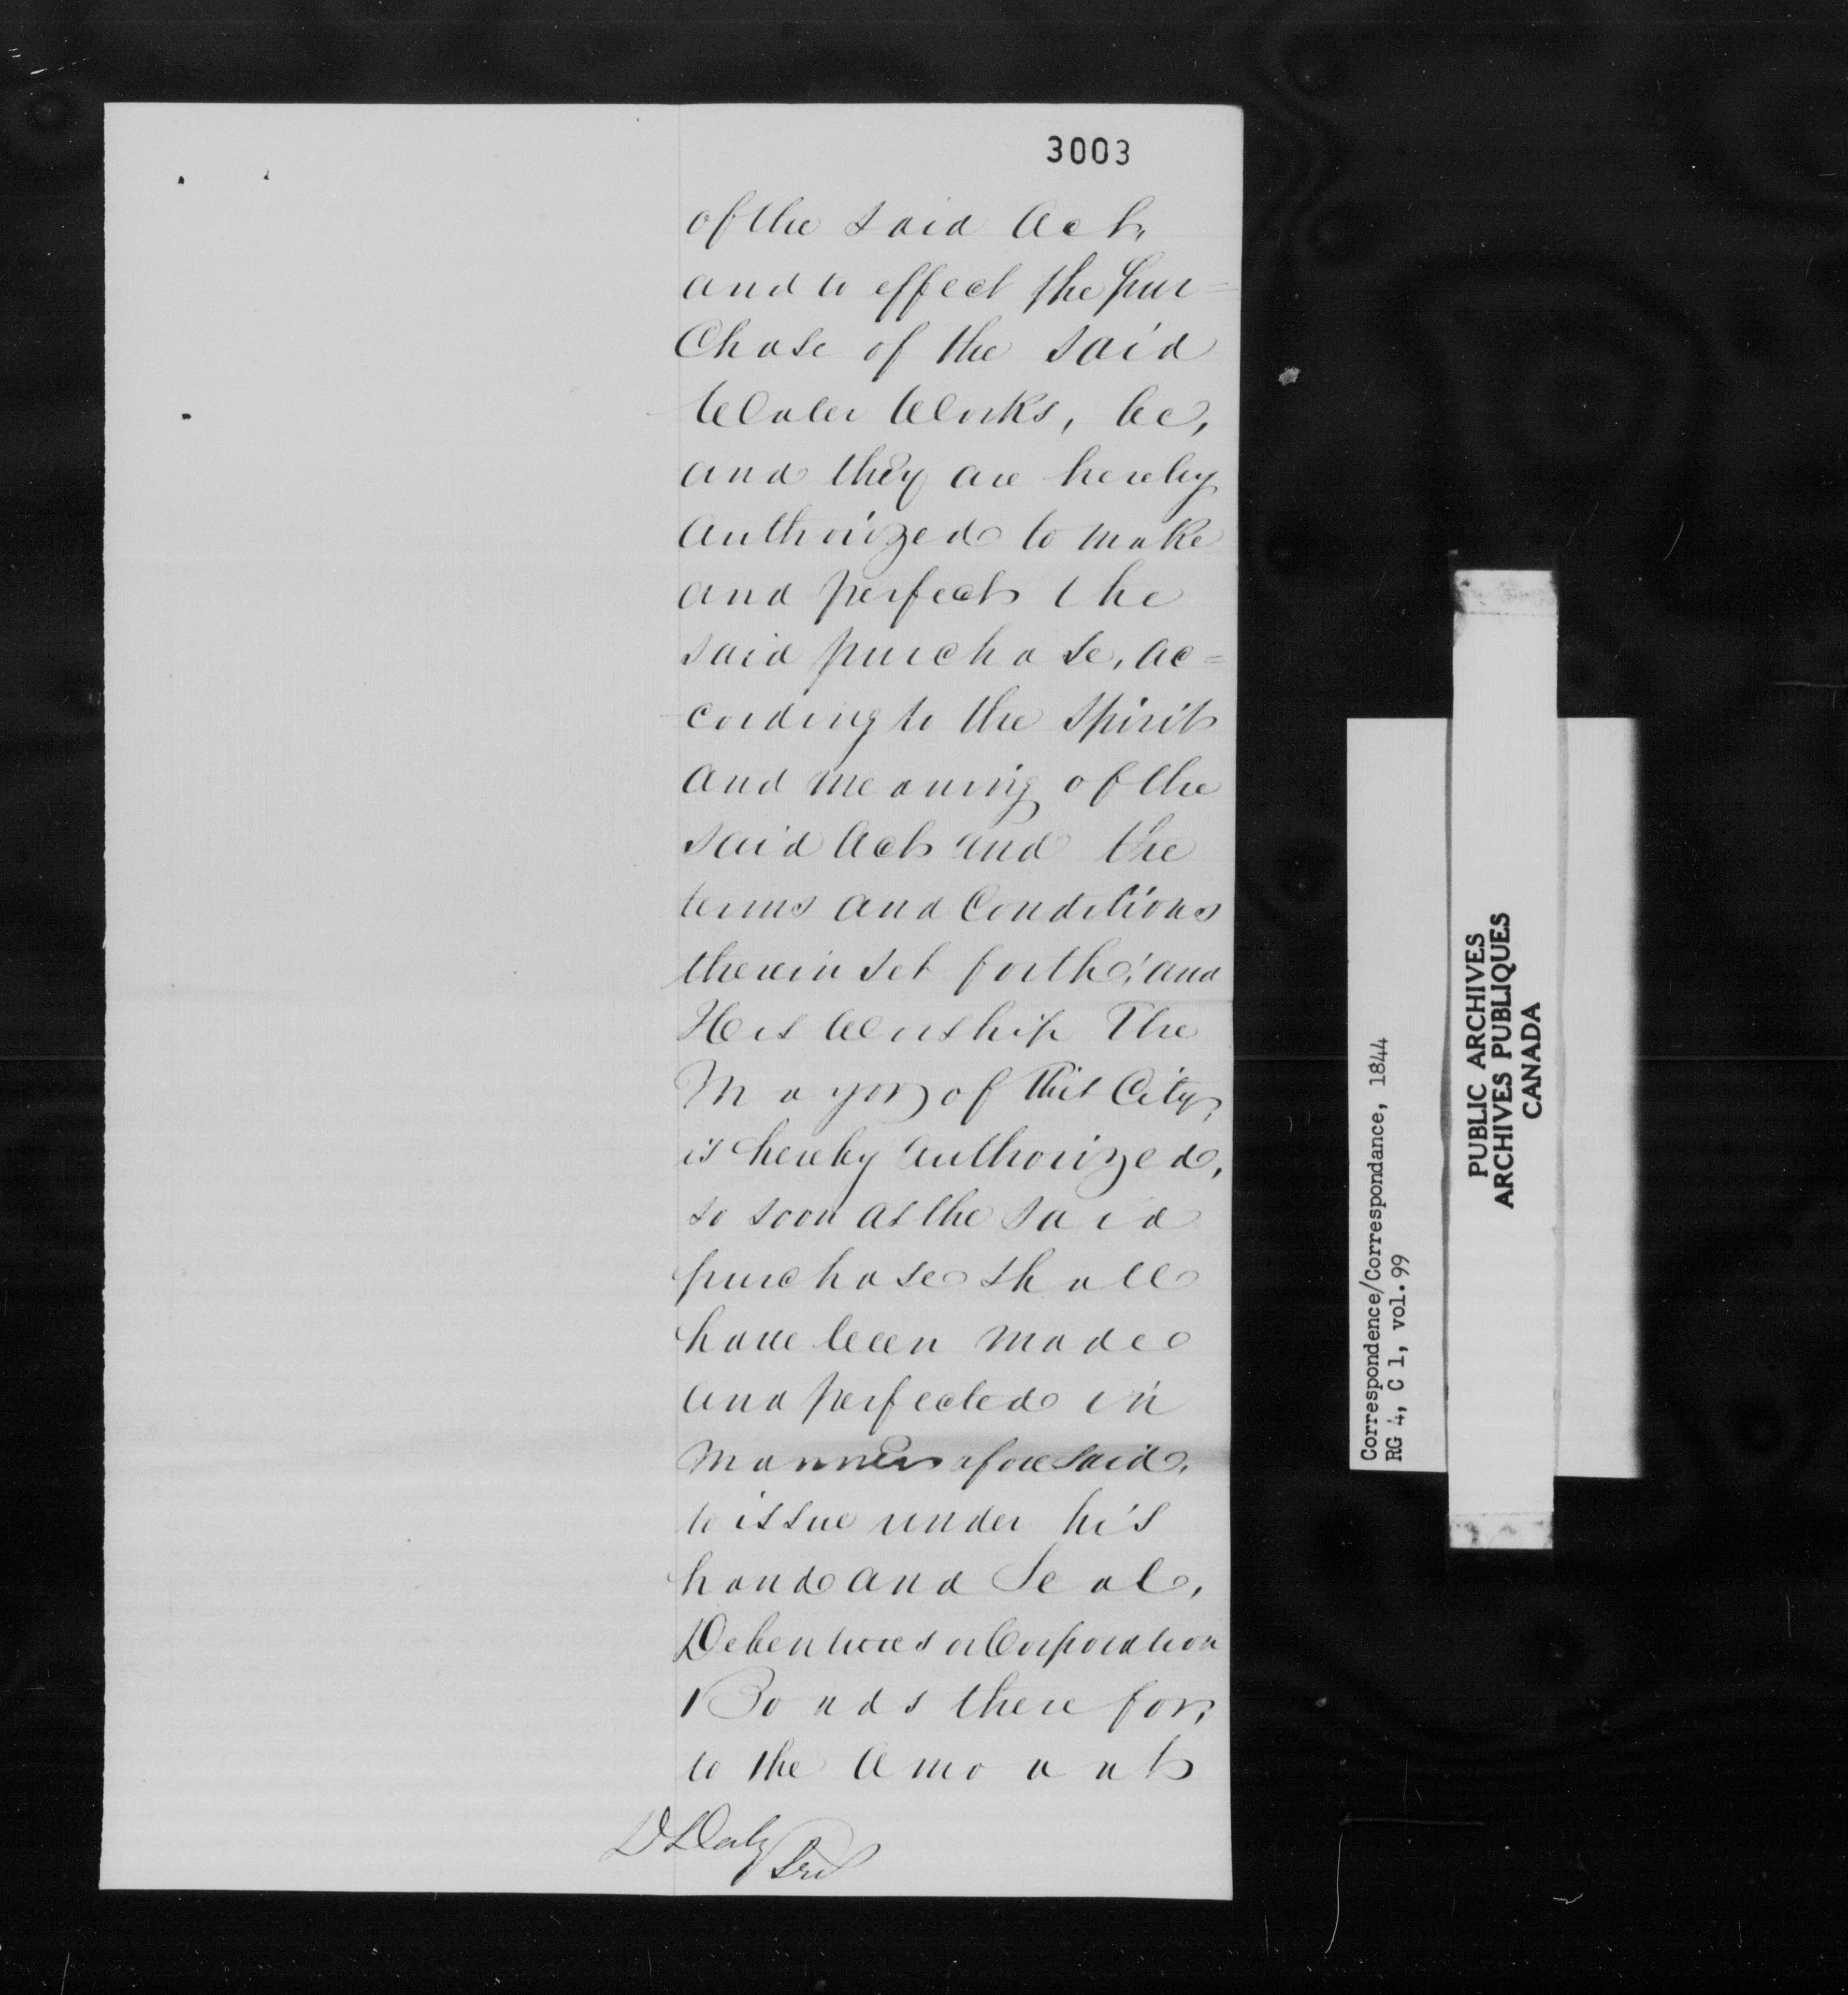 3003
of the said Act,
and to effect the pur=
Chase of the said
Water Works, be,
and they are hereby
authorized to make
and perfect the
said purchase, ac=
cording to the Spirit
and meaning of the
said Act and the
terms and Conditions
therein set forth; and
His Worship The
Mayor of This City,
is hereby authorized,
so soon as the said
purchase shall
have been made
and perfected in
manner aforesaid,
to issue under his
hand and Seal,
Debentures or Corporation
Bonds therefor,
to the Amount
D Daly
Correspondence/Correspondance, 1844
RG 4, C 1, vol. 99
PUBLIC ARCHIVES
ARCHIVES PUBLIQUES
CANADA